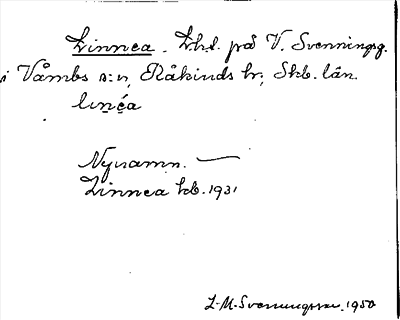 Linnea. Lht. på V. Svenningsg.
i Våmbs s:n, Kåkinds hr, Skb. län.
linéa
Nynamn. —
Linnea kb. 1931
L-M. Svenungsson. 1950